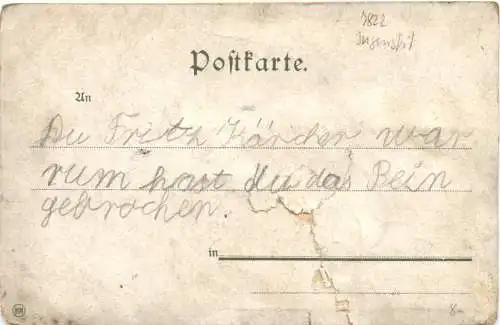 7822
Jugendstil
Postkarte.
An
Du Fritz Kärcher war
rum hast du das Bein
gebrochen.
in
8-